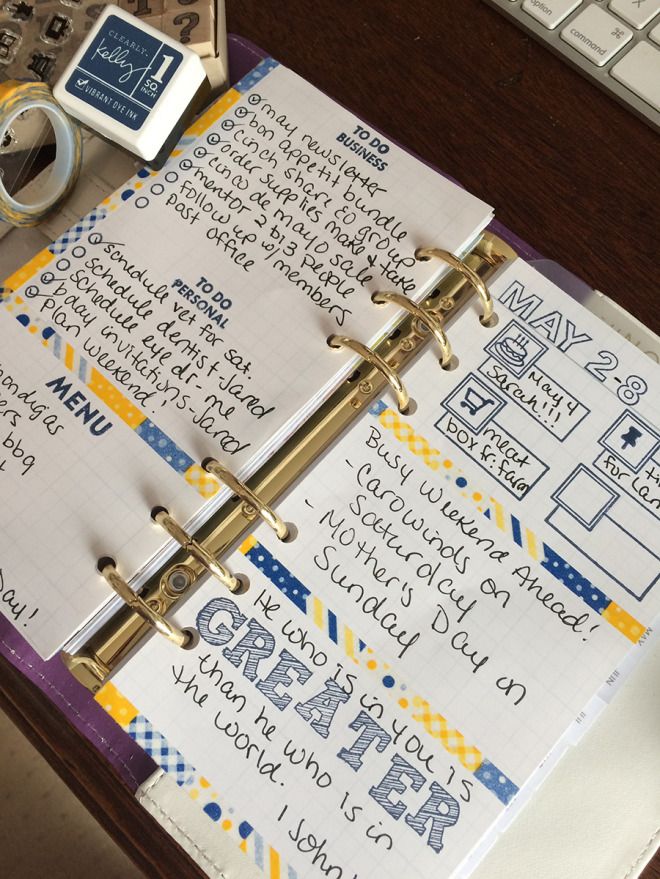 CLEARLY
Kelly
1
SQ.
INCH
VIBRANT DYE INK
option
command
TO DO
BUSINESS
may newsletter
bon appetit bundle
cinch share to group
order supplies make & take
cinco de mayo sale
mentor 2 b13 people
Follow up w/ members
post office
TO DO
PERSONAL
schedule vet for sat.
schedule dentist-Jared
schedule eye dr-me
bday invitations-Jared
plan weekend!
MENU
bbq
Day!
MAY 2-8
May 4
Sarah!!!
meat
box fr. farm
for
Busy Weekend Ahead!
- Carowinds on
Saturday
- Mother's Day on
Sunday
He who is in you is
GREATER
than he who is in
the world.
1 John
MAY
JUN
JUL